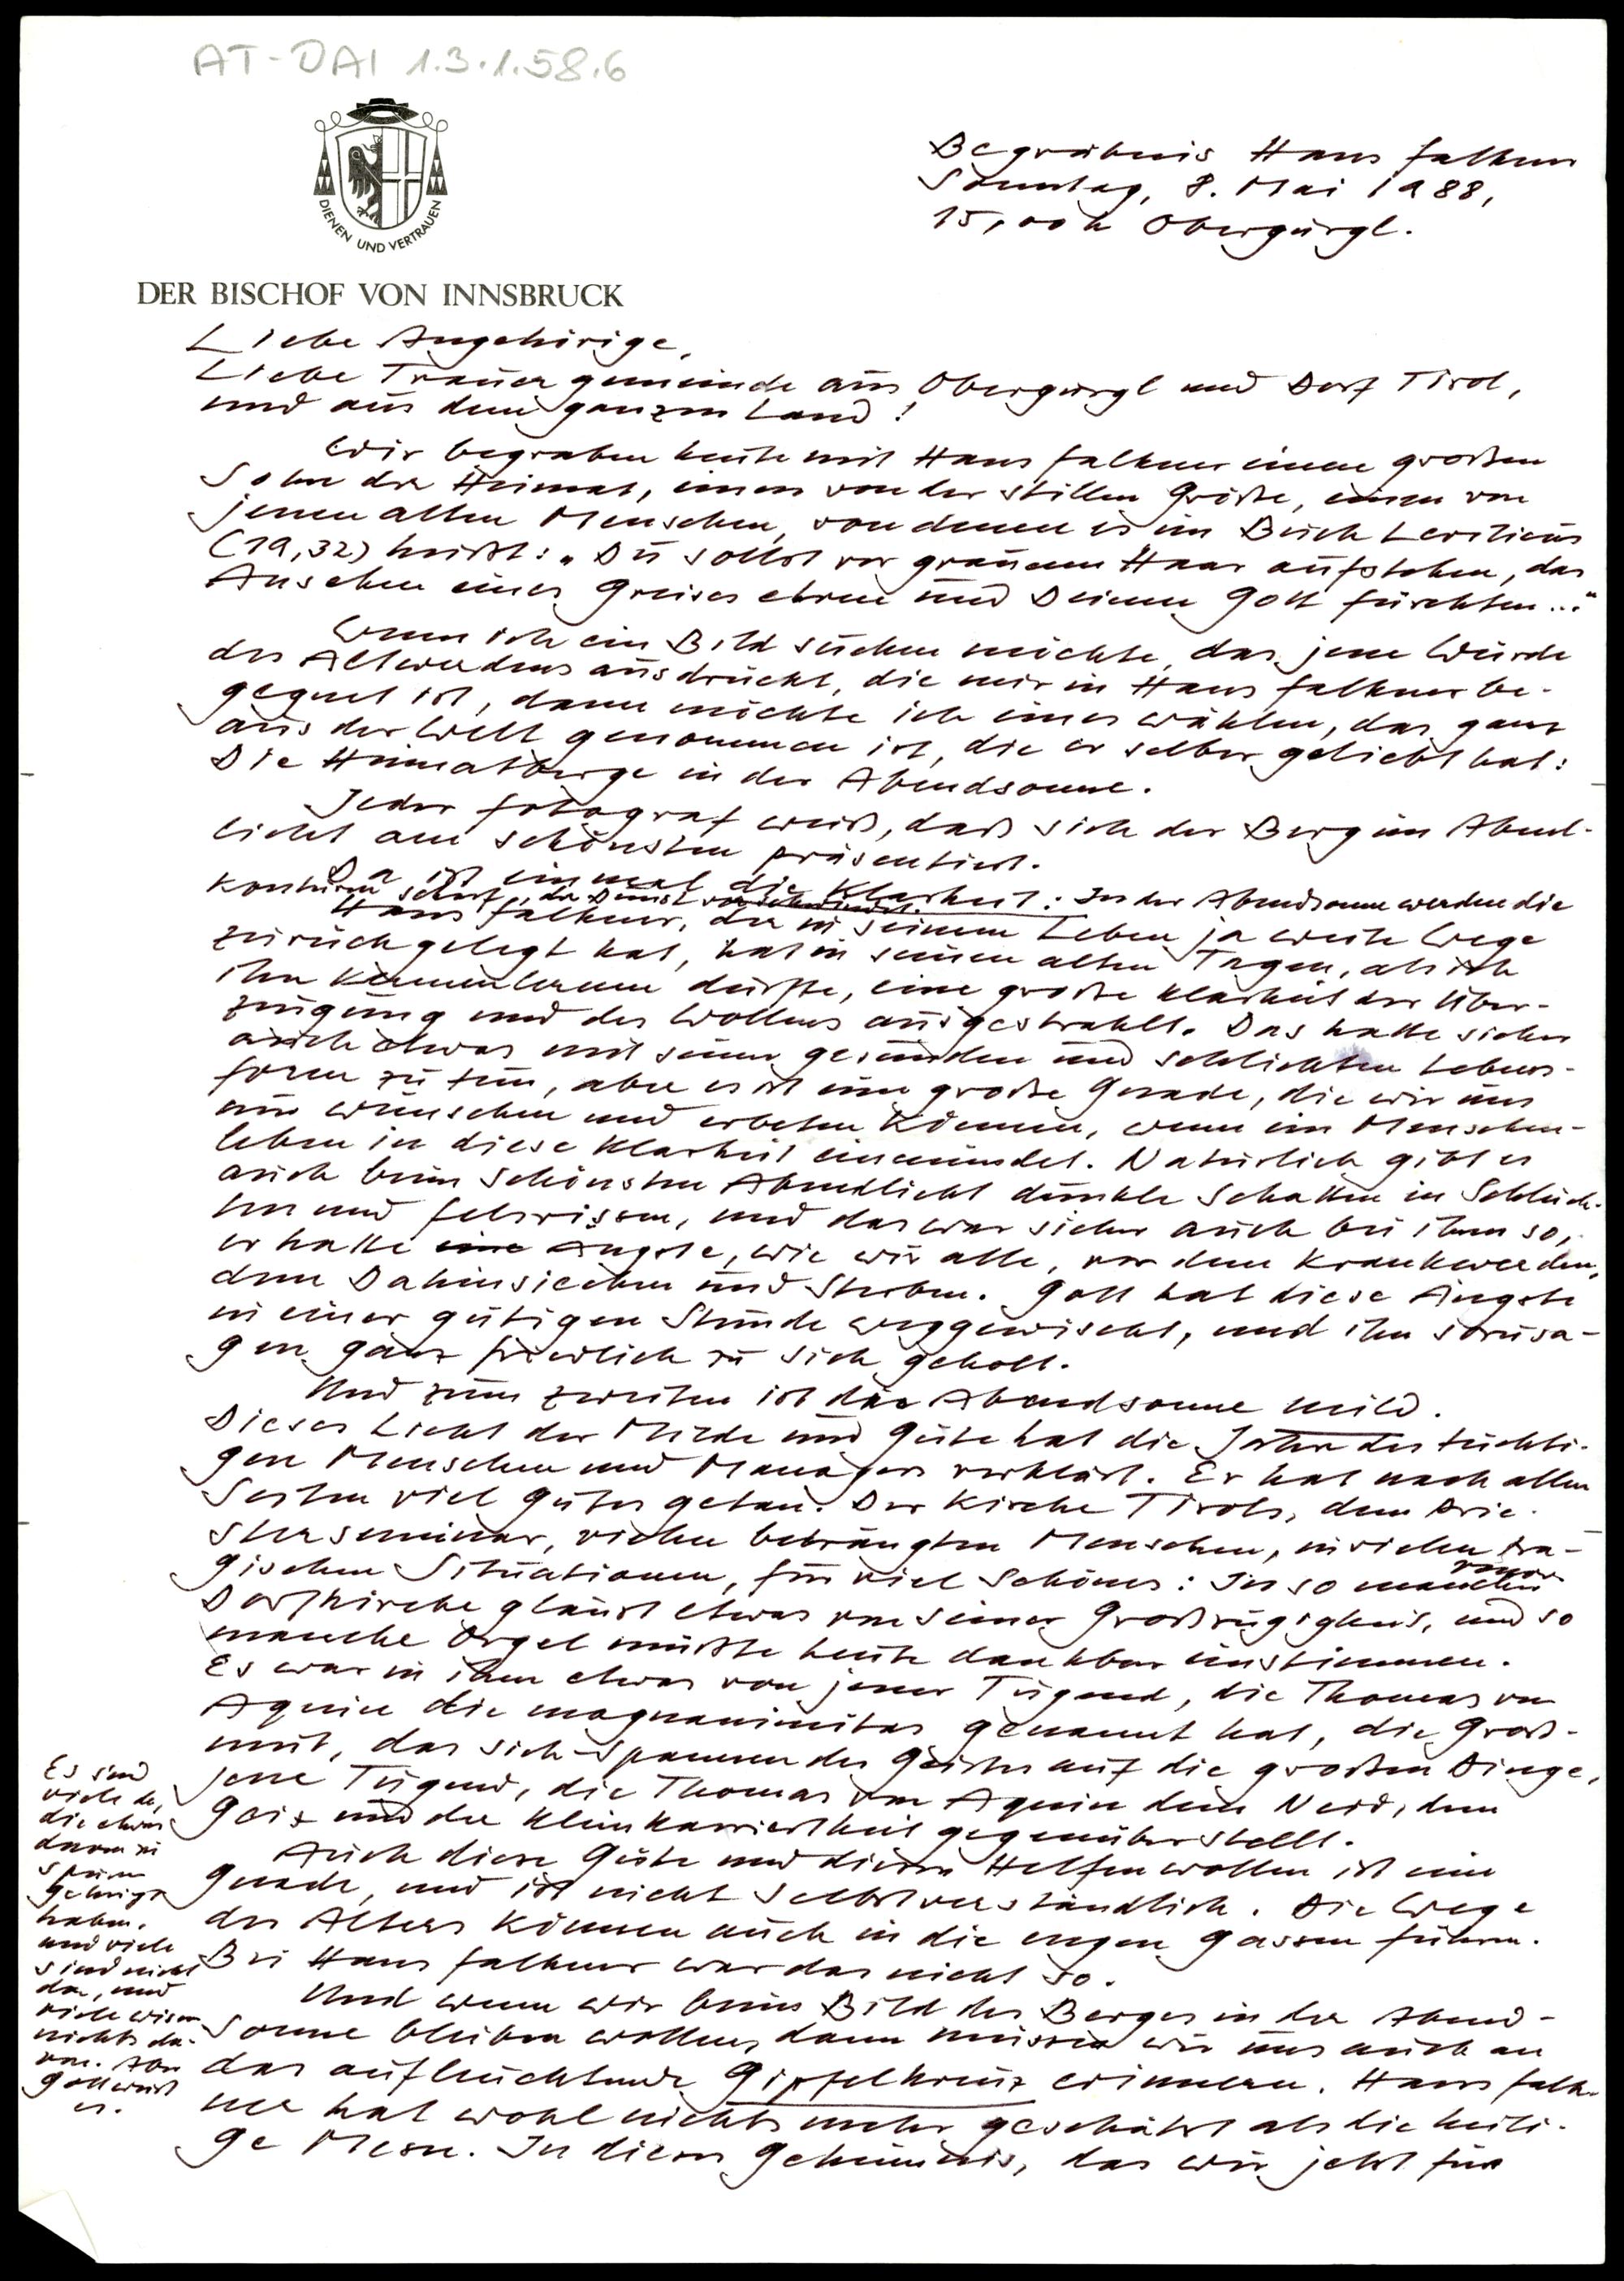 AT-DAI 1.3.1.58.6
DIENEN UND VERTRAUEN
DER BISCHOF VON INNSBRUCK
Begräbnis Hans Falkner
Sonntag, 8. Mai 1988,
15,00 h Obergurgl.
Liebe Angehörige,
Liebe Trauergemeinde aus Obergurgl und Dorf Tirol,
und aus dem ganzen Land!
Wir begraben heute mit Hans Falkner einen großen
Sohn der Heimat, einen von der stillen Größe, einen von
jenen alten Menschen, von denen es im Buch Leviticus
(19,32) heißt: „Du sollst vor grauem Haar aufstehen, das
Ansehen eines Greises ehren und Deinen Gott fürchten..."
Wenn ich ein Bild suchen möchte, das jene Würde
des Altwerdens ausdrückt, die mir in Hans Falkner be-
gegnet ist, dann möchte ich eines wählen, das ganz
aus der Welt genommen ist, die er selber geliebt hat:
Die Heimatberge in der Abendsonne.
Jeder Fotograf weiß, daß sich der Berg im Abend-
licht am schönsten präsentiert.
Da ist einmal die Klarheit: In der Abendsonne werden die
Konturen scharf, der Dunst verschwindet.
Hans Falkner, der in seinem Leben ja weite Wege
zurückgelegt hat, hat in seinen alten Tagen, als ich
ihn kennenlernen durfte, eine große Klarheit der Über-
zeugung und des Wollens ausgestrahlt. Das hatte sicher
auch etwas mit seiner gesunden und schlichten Lebens-
form zu tun, aber es ist eine große Gnade, die wir uns
nur wünschen und erbeten können, wenn ein Menschen-
leben in diese Klarheit einmündet. Natürlich gibt es
auch beim schönsten Abendlicht dunkle Schatten in Schluch-
ten und Felsrissen, und das war sicher auch bei ihm so,
er hatte eine Ängste, wie wir alle, vor dem Krankwerden,
dem Dahinsiechen und Sterben. Gott hat diese Ängste
in einer gütigen Stunde weggewischt, und ihn sozusa-
gen ganz friedlich zu sich geholt.
Und zum zweiten ist die Abendsonne mild.
Dieses Licht der Milde und Güte hat die Jahre des tüchti-
gen Menschen und Managers verklärt. Er hat nach allen
Seiten viel Gutes getan. Der Kirche Tirols, dem Prie-
sterseminar, vielen bedrängten Menschen, in vielen tra-
gischen Situationen, für viel Schönes: In so mancher
Dorfkirche glänzt etwas von seiner Großzügigkeit, und so
manche Orgel müßte heute dankbar einstimmen.
Es war in ihm etwas von jener Tugend, die Thomas von
Aquin die magnanimitas genannt hat, die Groß-
mut, das sich-Spannen des Geistes auf die großen Dinge,
jene Tugend, die Thomas von Aquin dem Neid, dem
Geiz und der Kleinkariertheit gegenüberstellt.
Auch diese Güte und dieses Helfenwollen ist eine
Gnade, und ist nicht selbstverständlich. Die Wege
des Alters können auch in die engen Gassen führen.
Bei Hans Falkner war das nicht so.
Und wenn wir beim Bild des Berges in der Abend-
sonne bleiben wollen, dann müssen wir uns auch an
das aufleuchtende Gipfelkreuz erinnern. Hans Falk-
ner hat wohl nichts mehr geschätzt als die heili-
ge Messe. In dieses Geheimnis, das wir jetzt für
Es sind
viele da,
die etwas
davon zu
spüren
gekriegt
haben.
und viele
sind nicht
da, und
viele wissen
nichts da-
von. Aber
Gott weiß
es.